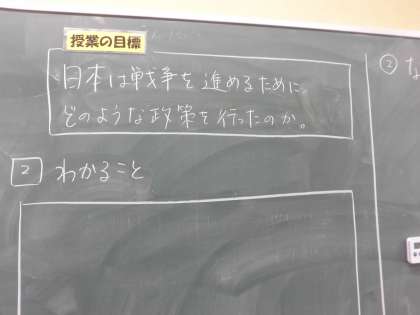 授業の目標
日本は戦争を進めるために、
どのような政策を行ったのか。
2 わかること
② な